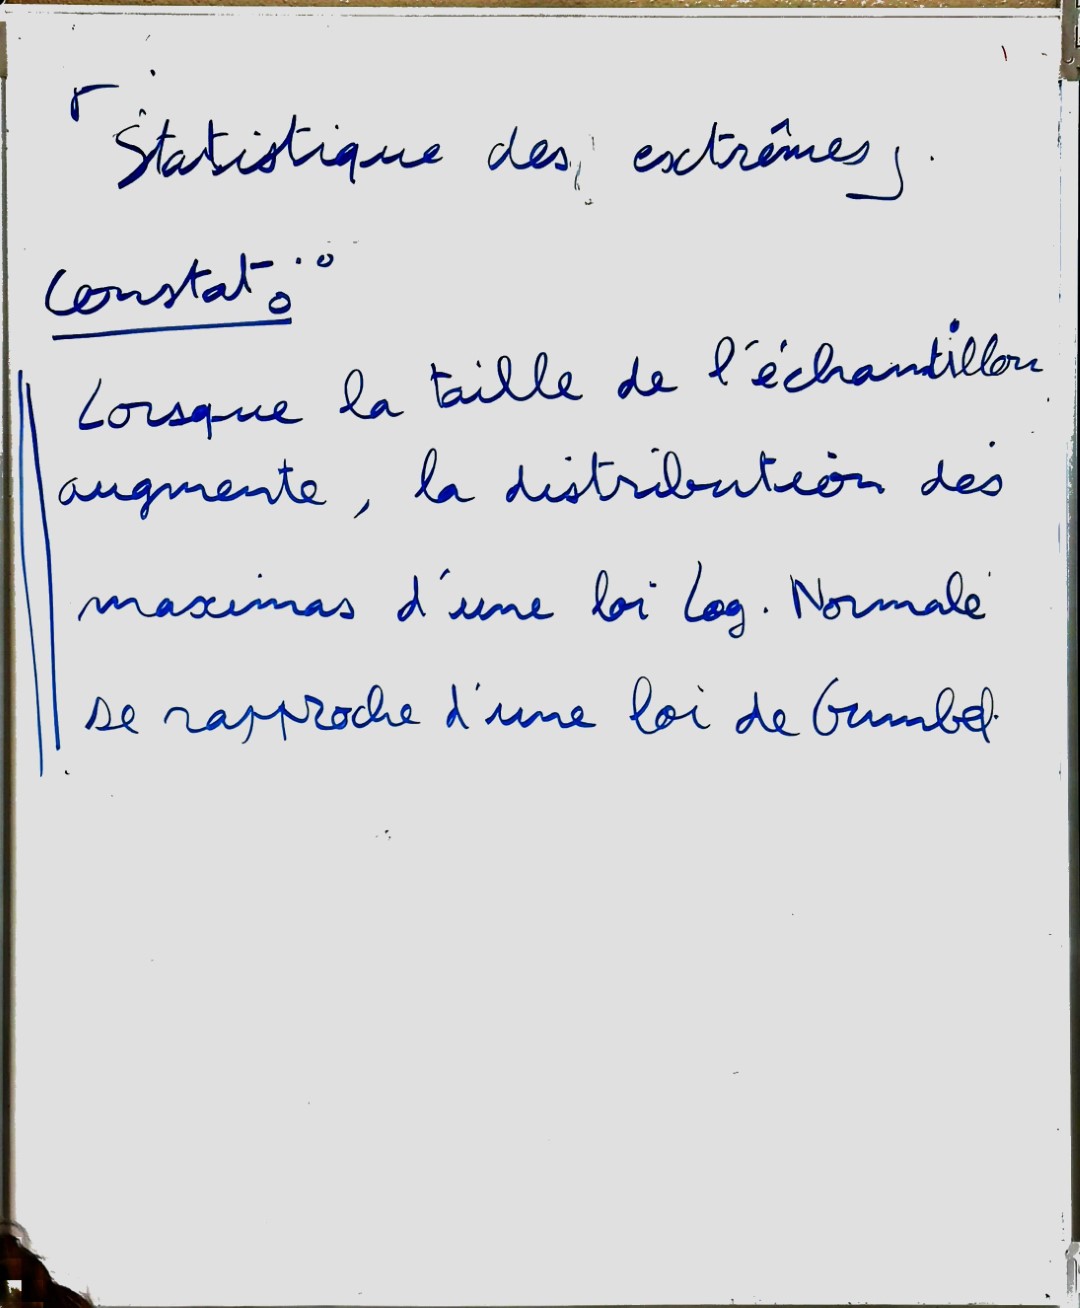 Statistique des extrêmes.
Constat :
Lorsque la taille de l'échantillon
augmente, la distribution des
maximas d'une loi Log. Normale
se rapproche d'une loi de Gumbel.